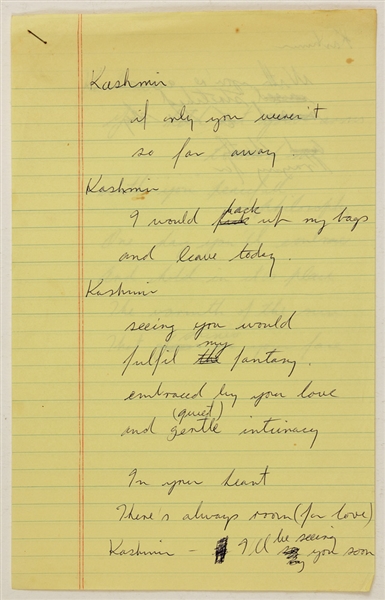 Kashmir
if only you weren't
so far away.
Kashmir
I would pack up my bags
and leave today.
Kashmir
seeing you would
fulfil my fantasy.
embraced by your love
(quiet)
and gentle intimacy
In your heart
There's always room (for love)
Kashmir - I'll be seeing you soon